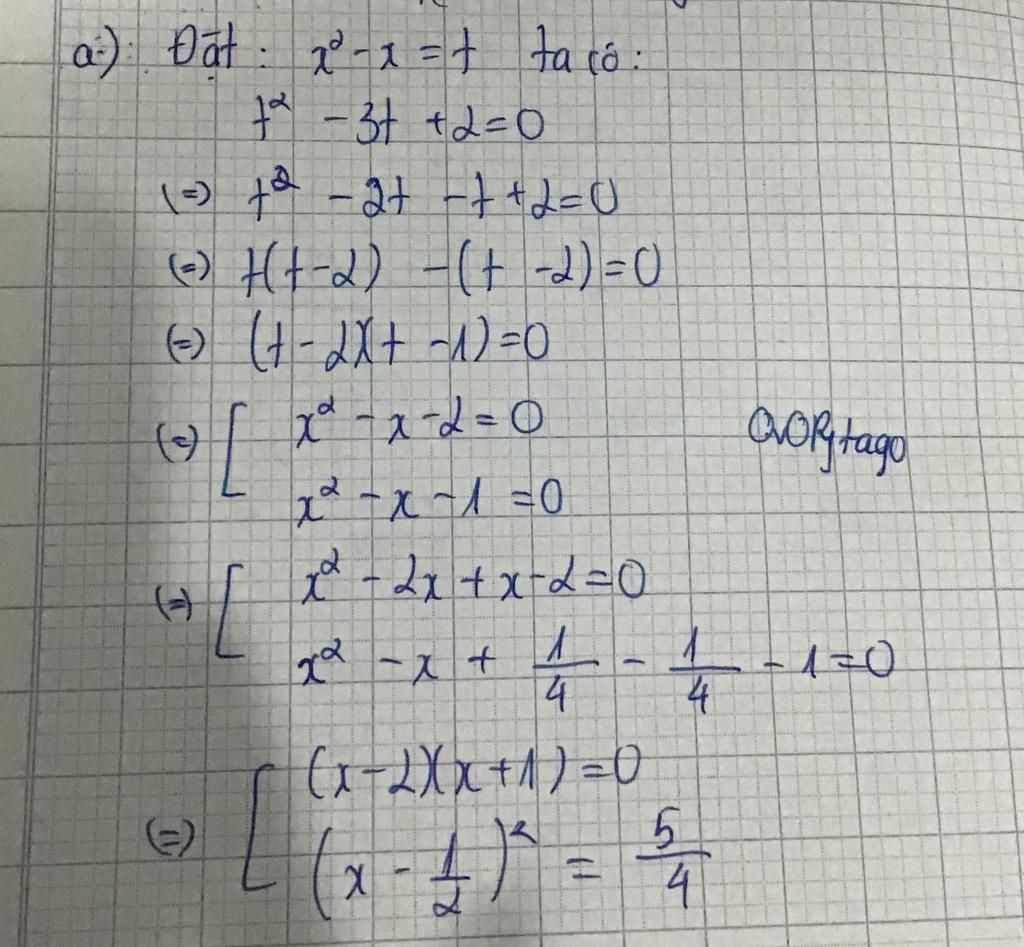 a): Đặt: x² - x = t ta có:
t² - 3t + 2 = 0
(=) t² - 2t - t + 2 = 0
(=) t(t - 2) - (t - 2) = 0
(=) (t - 2)(t - 1) = 0
(=) [ x² - x - 2 = 0
QvOPytago
x² - x - 1 = 0
(=) [ x² - 2x + x - 2 = 0
x² - x + 1/4 - 1/4 - 1 = 0
(=) [ (x - 2)(x + 1) = 0
(x - 1/2)² = 5/4